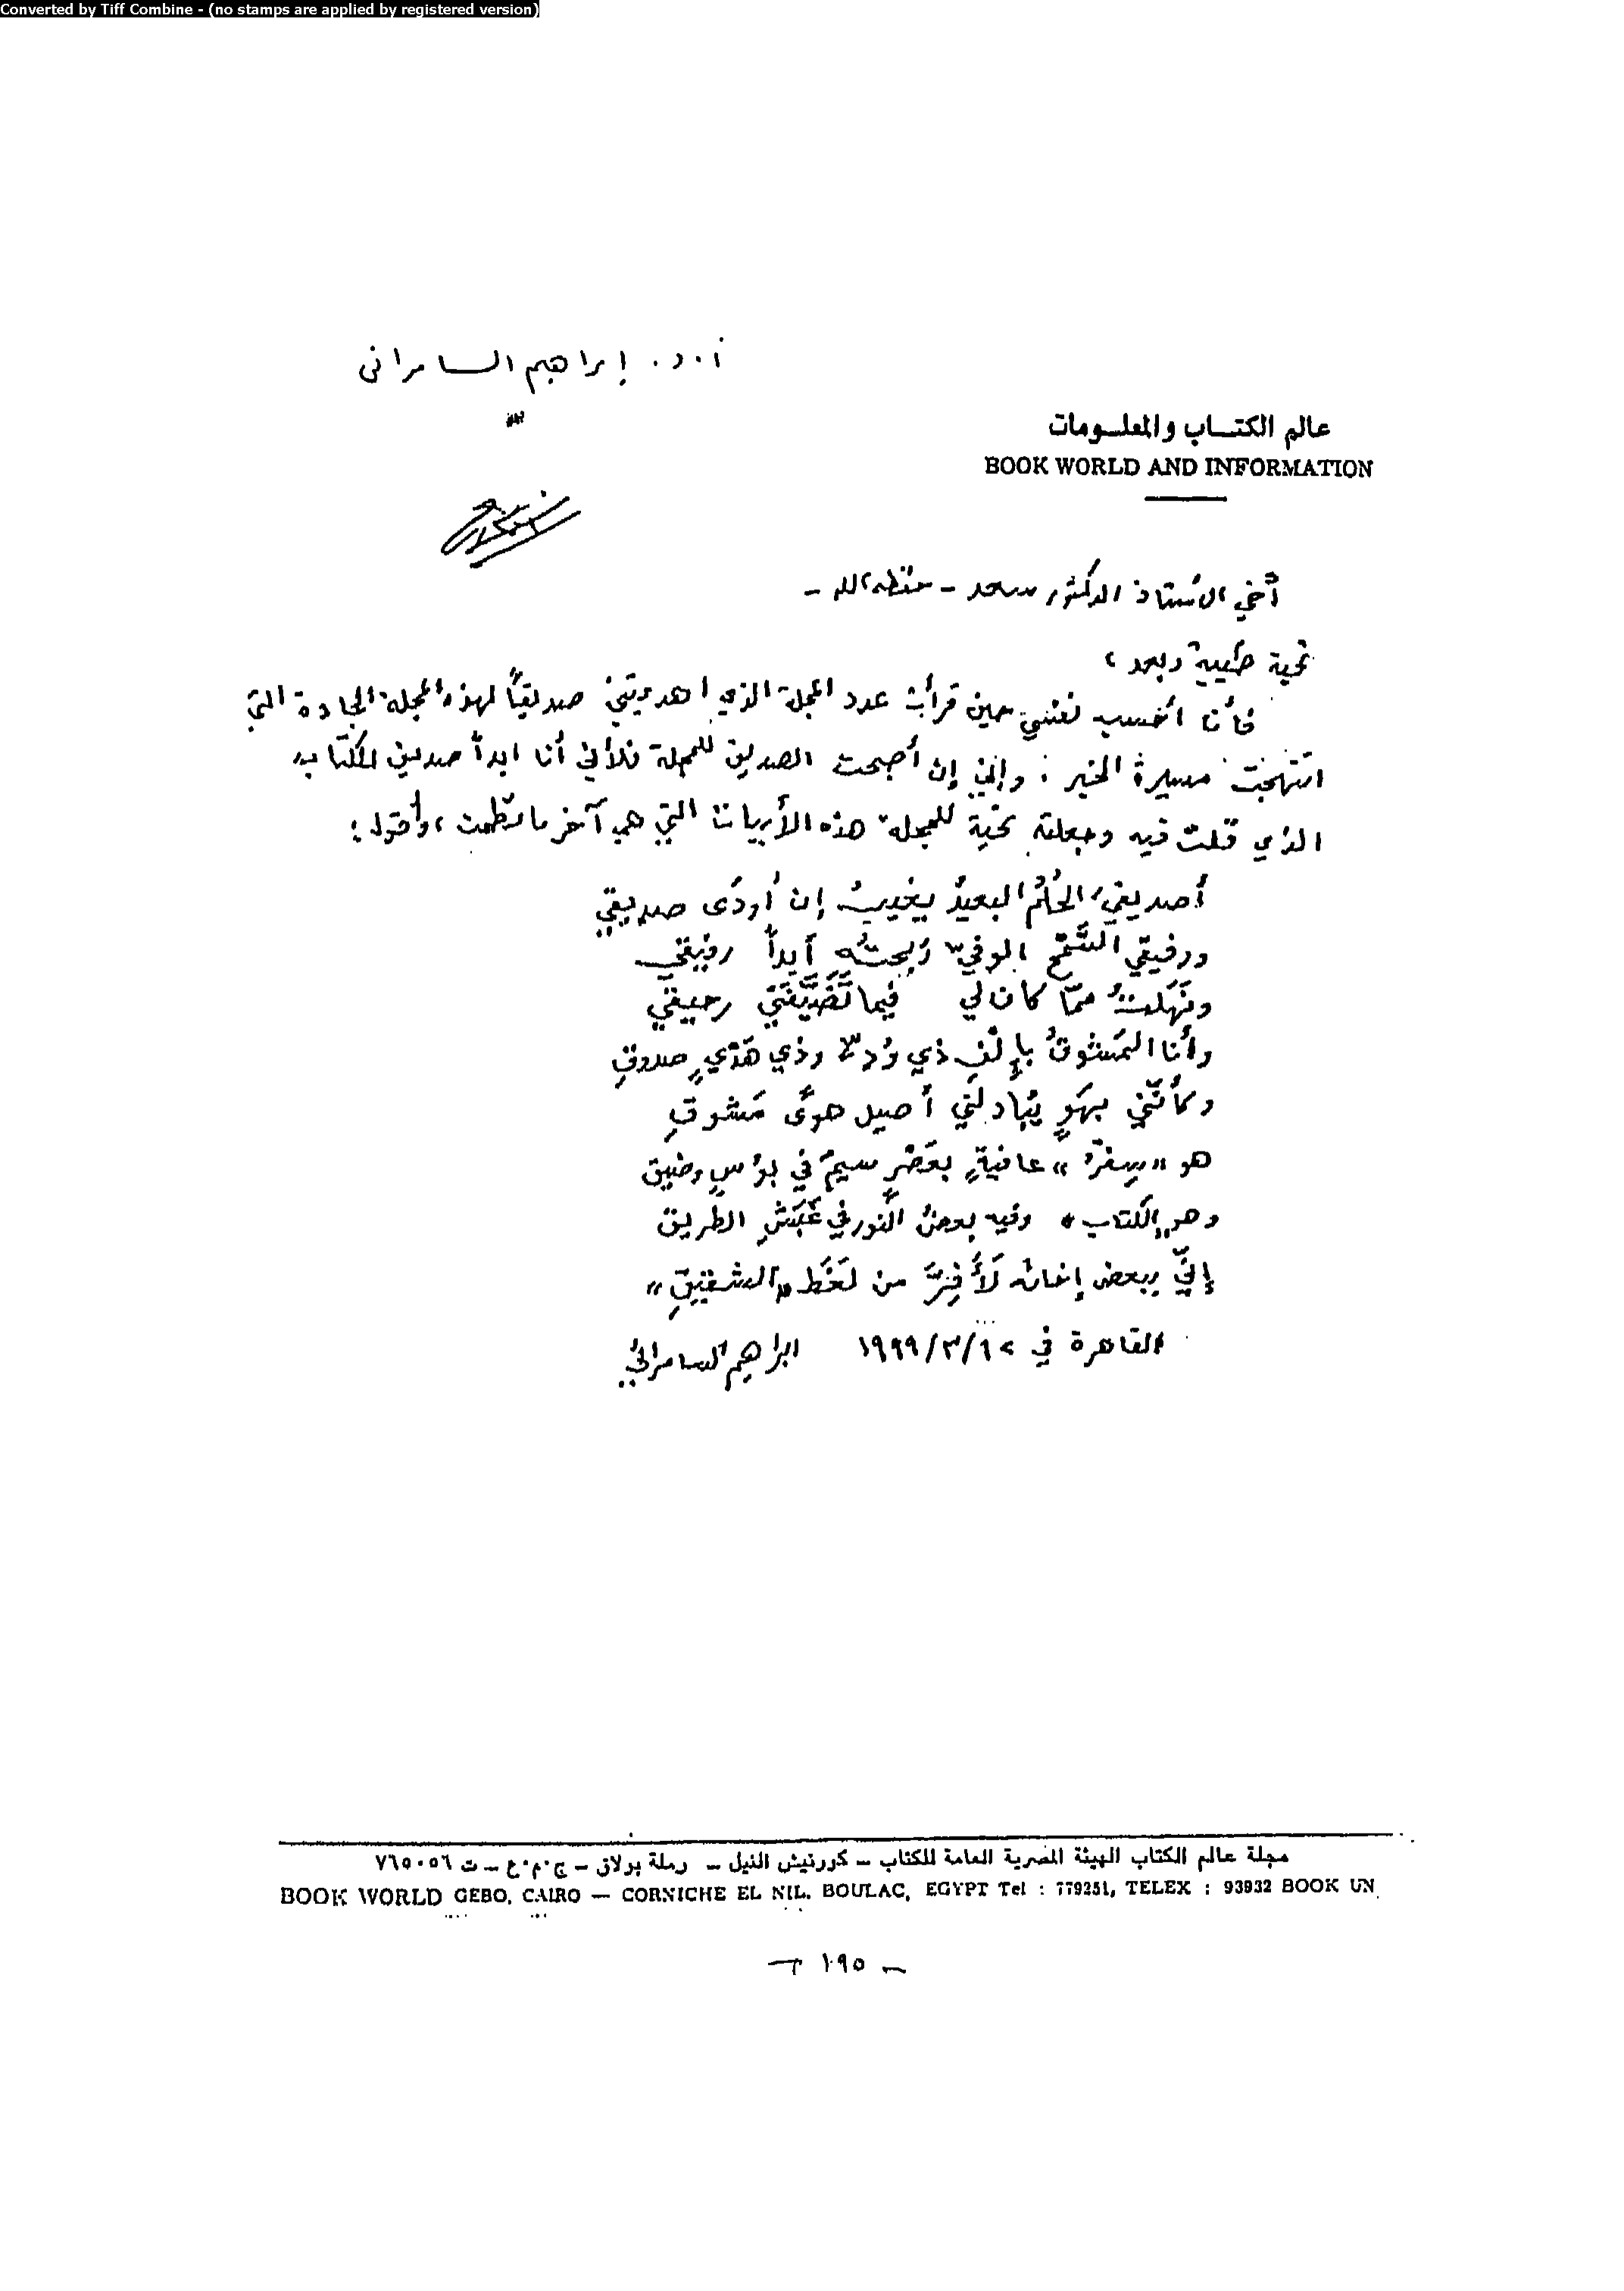 Converted by Tiff Combine - (no stamps are applied by registered version)
أ.د. إبراهيم السامرائى
عالم الكتـــاب والمعلــومات
BOOK WORLD AND INFORMATION
أخي الأستاذ الدكتور سعد - حفظه الله -
تحية طيبة وبعد ،
فأنا أحسب نفسي حين قرأت عدد المجلة الذي اهديتني صديقاً لهذه المجلة الجادة التي
انتهجت مسيرة الخير ؛ وإني إن أصبحت الصديق للمجلة فلأني أنا ابداً صديق الكتاب
الذي قلت فيه وجعلته تحية للمجلة هذه الأبيات التي هي آخر ما نظمت ، وأقول :
أصديقيَ الحُلُمُ البعيدُ يغيبُ إن أودَى صديقي
ورفيقي السَّمْحُ الوفيّ رَبِحتُه أبداً رفيقي
ونَهَلتُ ممّا كان لي فيما تَضَيَّفَني رحيقي
وأنا المَشُوقُ بإلْفِ ذي وُدٍّ وذي هَدْيٍ صدوقِ
وكأنّني بهَوٍ يُبادلني أصيل هوىً مَشوقِ
هو «سِفرُ» عافيةٍ بعَصْرٍ سيمَ في بؤسٍ وضيق
وهو «الكتاب» وفيه بعضُ النّور في غَبَشِ الطريق
إنّي ببعض إخائه لَأَفِرُّ من لَغَط «الشقيقِ»
القاهرة في ١٩٩٩/٣/١٠ ابراهيم السامرائي
مجلة عالم الكتاب الهيئة المصرية العامة للكتاب – كورنيش النيل – رملة بولاق – ج٠م٠ع – ت ٧٦٥٠٥٦
BOOK WORLD GEBO, CAIRO — CORNICHE EL NIL. BOULAC, EGYPT Tel : 779251, TELEX : 93932 BOOK UN
– ١٩٥ –